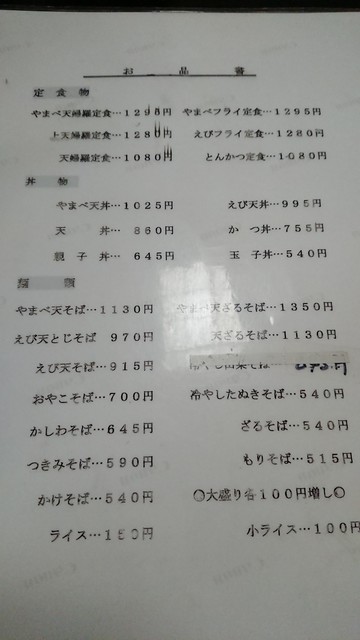 お品書
定食物
やまべ天婦羅定食…1295円 やまべフライ定食…1295円
上天婦羅定食…1280円 えびフライ定食…1280円
天婦羅定食…1080円 とんかつ定食…1080円
丼物
やまべ天丼…1025円 えび天丼…995円
天丼…860円 かつ丼…755円
親子丼…645円 玉子丼…540円
麺類
やまべ天そば…1130円 やまべ天ざるそば…1350円
えび天とじそば 970円 天ざるそば…1130円
えび天そば…915円
おやこそば…700円 冷やしたぬきそば…540円
かしわそば…645円 ざるそば…540円
つきみそば…590円 もりそば…515円
かけそば…540円 ◎大盛り各100円増し◎
ライス…150円 小ライス…100円